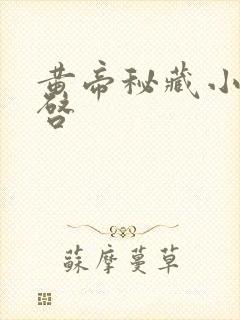 黄帝秘藏小
啓
蘇摩蔓草